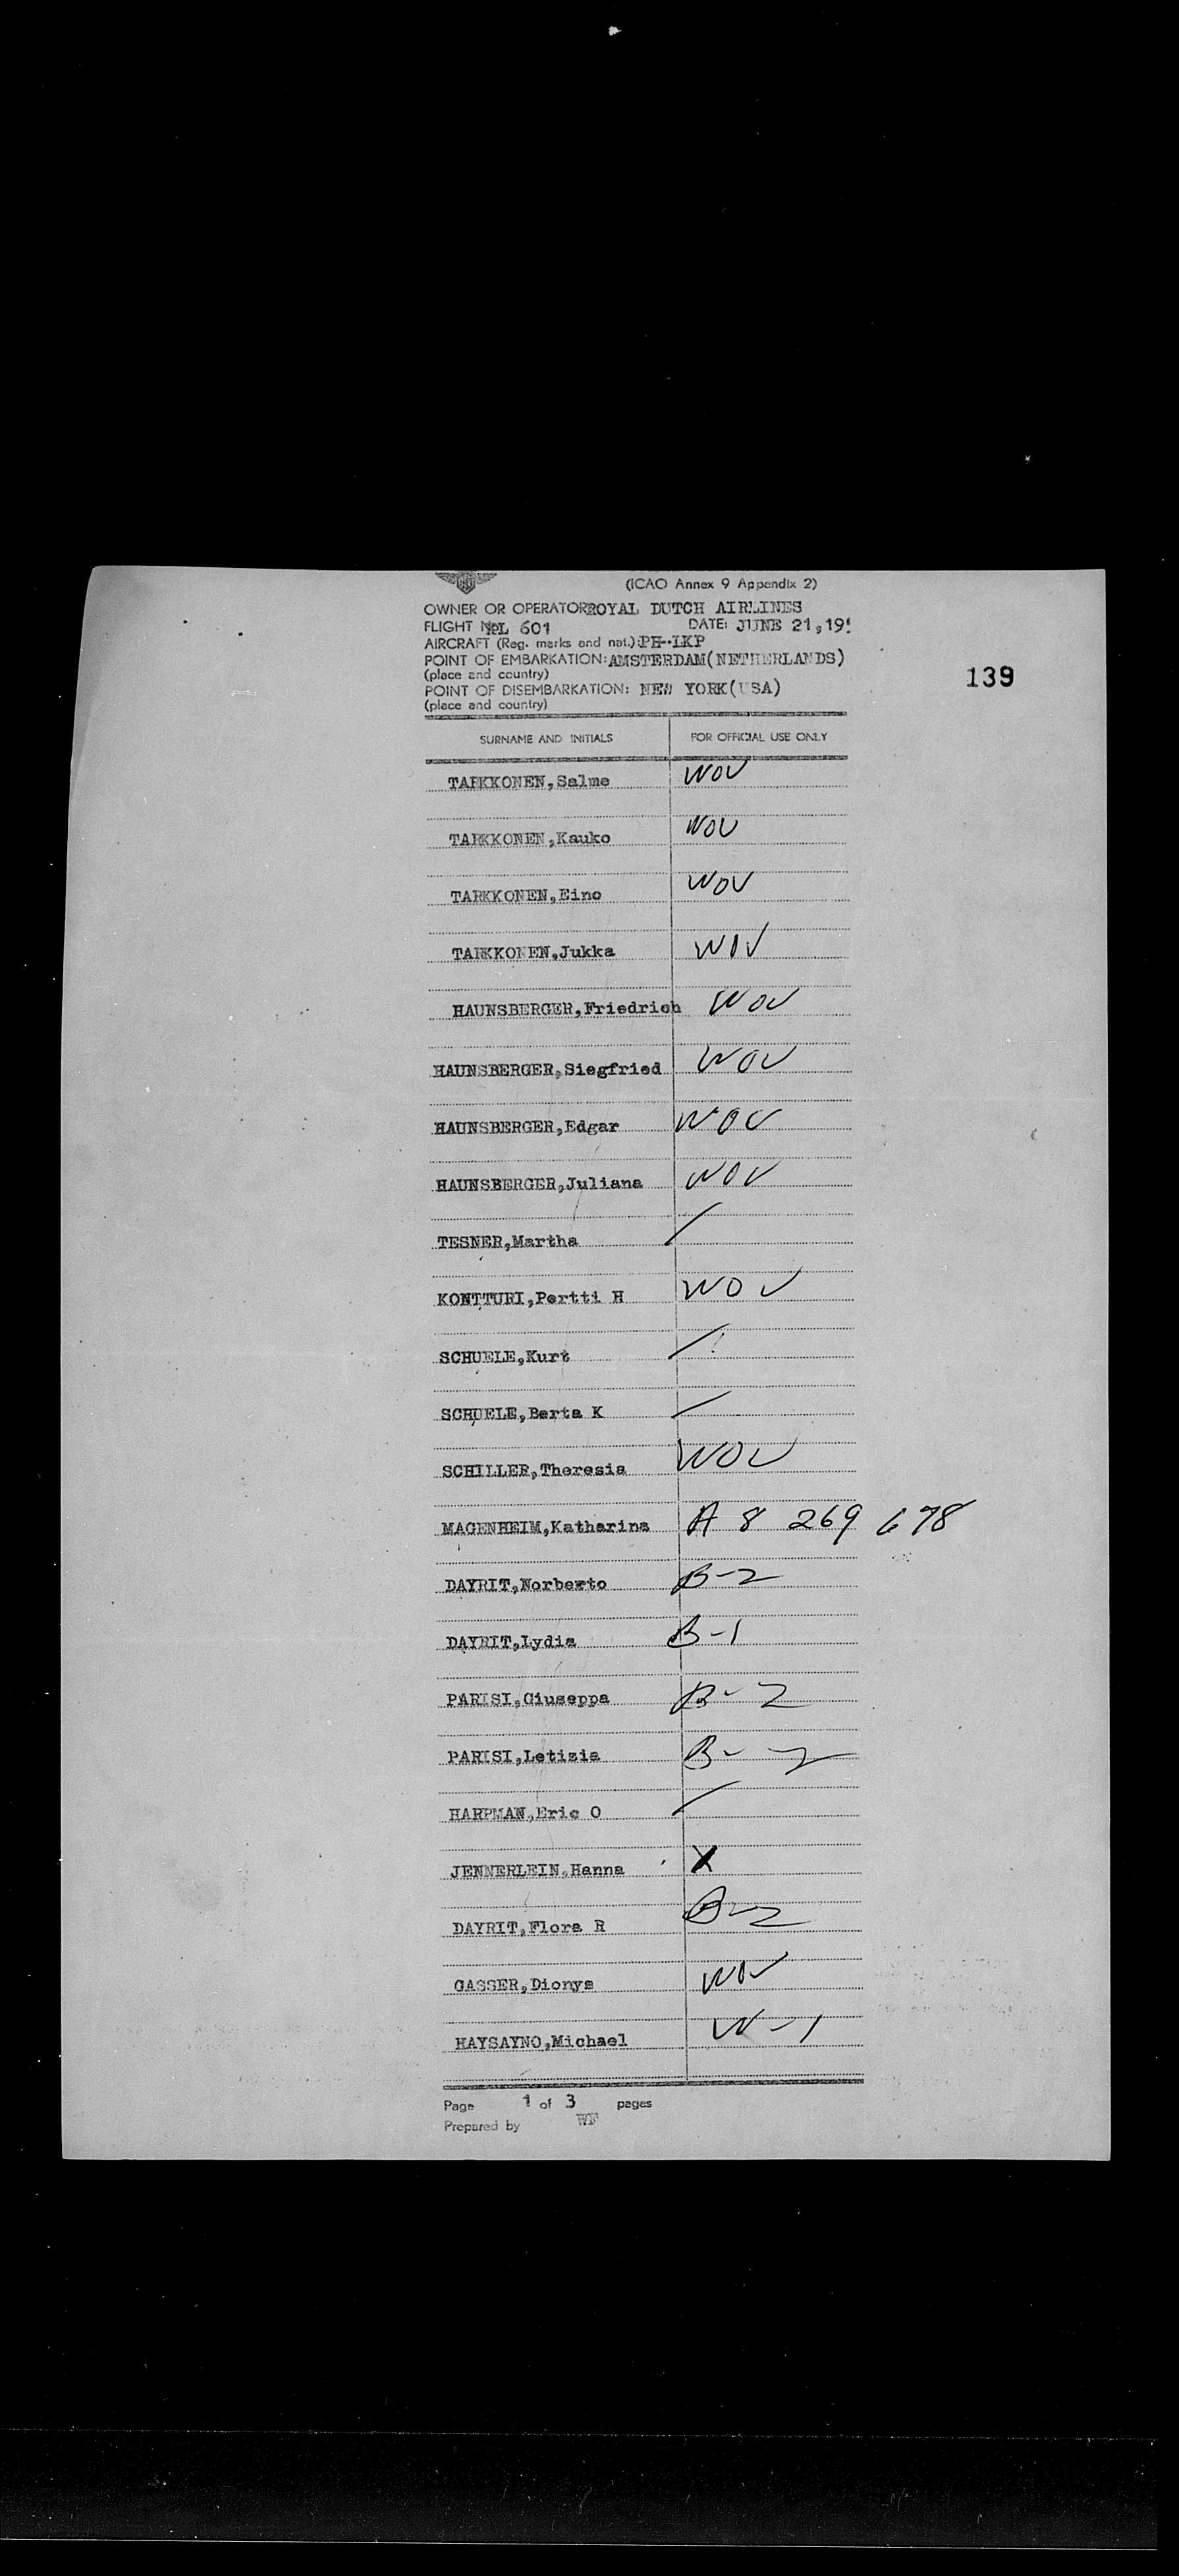 (ICAO Annex 9 Appendix 2)
OWNER OR OPERATOR ROYAL DUTCH AIRLINES
FLIGHT No. 601 DATE: JUNE 21, 19
AIRCRAFT (Reg. marks and nat.): PH-LKP
POINT OF EMBARKATION: AMSTERDAM(NETHERLANDS)
(place and country)
139
POINT OF DISEMBARKATION: NEW YORK(USA)
(place and country)
SURNAME AND INITIALS FOR OFFICIAL USE ONLY
TARKKONEN,Salme WOV
TARKKONEN,Kauko WOV
TARKKONEN,Eino WOV
TARKKONEN,Jukka WOV
HAUNSBERGER,Friedrich WOV
HAUNSBERGER,Siegfried WOV
HAUNSBERGER,Edgar WOV
HAUNSBERGER,Juliana WOV
TESNER,Martha /
KONTTURI,Pertti H WOV
SCHUELE,Kurt /
SCHUELE,Berta K /
SCHILLER,Theresia WOV
MAGENHEIM,Katharina A 8 269 678
DAYRIT,Norberto B-2
DAYRIT,Lydia B-1
PARISI,Giuseppa B-2
PARISI,Letizia B-2
HARPMAN,Eric O /
JENNERLEIN,Hanna X
DAYRIT,Flora R B-2
GASSER,Dionys WOV
HAYSAYNO,Michael W-1
Page 1 of 3 pages
Prepared by WF